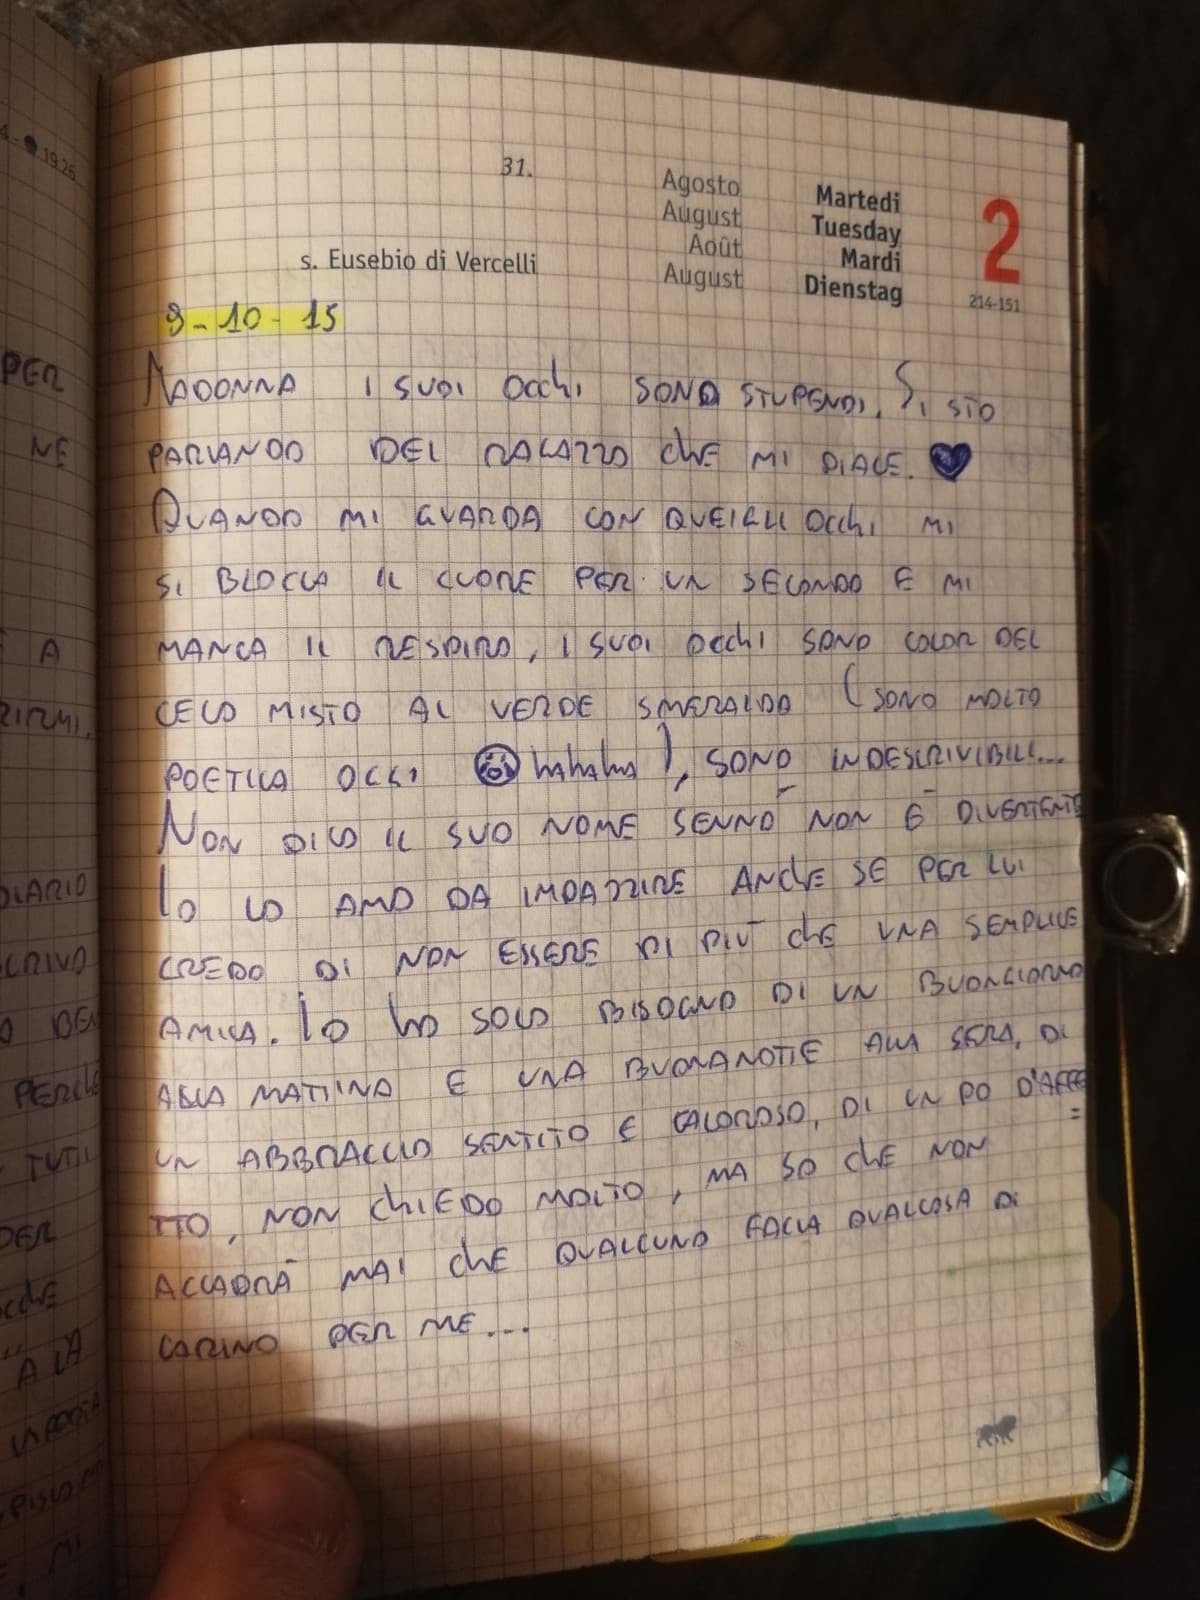 4 - 19.26
PER
NE
E A
DIARIO
PER
A LA
MI
31.
Agosto Martedi 2
August Tuesday
Août Mardi
August Dienstag
s. Eusebio di Vercelli
214-151
9-10-15
MADONNA I SUOI OCCHI SONO STUPENDI. SI STO
PARLANDO DEL RAGAZZO CHE MI PIACE. ♥
QUANDO MI GUARDA CON QUEIGLI OCCHI MI
SI BLOCCA IL CUORE PER UN SECONDO E MI
MANCA IL RESPIRO, I SUOI OCCHI SONO COLOR DEL
CELO MISTO AL VERDE SMERALDO (SONO MOLTO
POETICA OGGI hahaha), SONO INDESCRIVIBILI...
NON DICO IL SUO NOME SENNÒ NON È DIVERTENTE
IO LO AMO DA IMPAZZIRE ANCHE SE PER LUI
CREDO DI NON ESSERE DI PIÙ CHE UNA SEMPLICE
AMICA. IO HO SOLO BISOGNO DI UN BUONGIORNO
ALLA MATTINA E UNA BUONANOTTE ALLA SERA, DI
UN ABBRACCIO SENTITO E CALOROSO, DI UN PO D'AFFE=
TTO, NON CHIEDO MOLTO, MA SO CHE NON
ACCADRÀ MAI CHE QUALCUNO FACCIA QUALCOSA DI
CARINO PER ME...